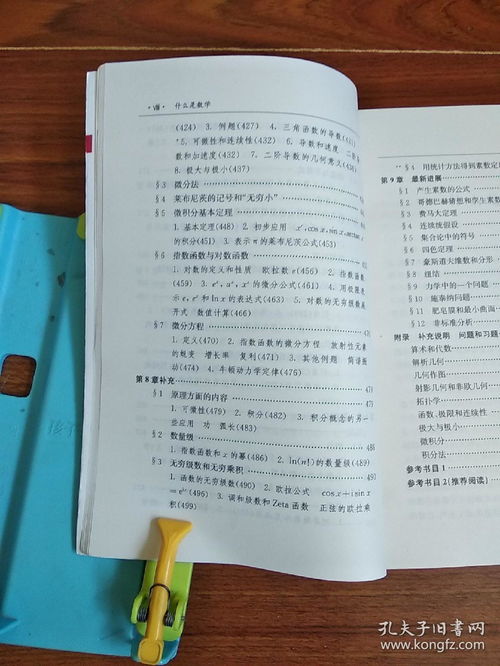 · Ⅷ · 什么是数学
(424) 3. 例题(427) 4. 三角函数的导数(431)
*5. 可微性和连续性(432) 6. 导数和速度 二阶导
数和加速度(432) 7. 二阶导数的几何意义(434)
8. 极大与极小(437)
§3 微分法
§4 莱布尼茨的记号和“无穷小”
§5 微积分基本定理
1. 基本定理(448) 2. 初步应用 xʳ, cos x, sin x, arctan x
的积分(451) 3. 表示 π 的莱布尼茨公式(453)
§6 指数函数与对数函数
1. 对数的定义和性质 欧拉数 e(456) 2. 指数函数
(459) 3. eˣ, aˣ, xˢ 的微分公式(461) 4. 用极限表
示 e, eˣ 和 ln x 的表达式(463) 5. 对数的无穷级数展
开式 数值计算(466)
§7 微分方程
1. 定义(470) 2. 指数函数的微分方程 放射性元素
的蜕变 增长率 复利(471) 3. 其他例题 简谐振
动(474) 4. 牛顿动力学定律(476)
第8章补充 479
§1 原理方面的内容 479
1. 可微性(479) 2. 积分(482) 3. 积分概念的另一
些应用 功 弧长(483)
§2 数量级 486
1. 指数函数和 x 的幂(486) 2. ln(n!)的数量级(489)
§3 无穷级数和无穷乘积 490
1. 函数的无穷级数(490) 2. 欧拉公式 cos x + i sin x
= eⁱˣ(496) 3. 调和级数和 Zeta 函数 正弦的欧拉乘
积(499)
**§4 用统计方法得到素数定
第9章 最新进展
§1 产生素数的公式
§2 哥德巴赫猜想和孪生素数
§3 费马大定理
§4 连续统假设
§5 集合论中的符号
§6 四色定理
§7 豪斯道夫维数和分形
§8 纽结
§9 力学中的一个问题
§10 施泰纳问题
§11 肥皂膜和最小曲面
§12 非标准分析
附录 补充说明 问题和习题
算术和代数
解析几何
几何作图
射影几何和非欧几何
拓扑学
函数、极限和连续性
极大与极小
微积分
积分法
参考书目1
参考书目2(推荐阅读)
孔夫子旧书网
www.kongfz.com